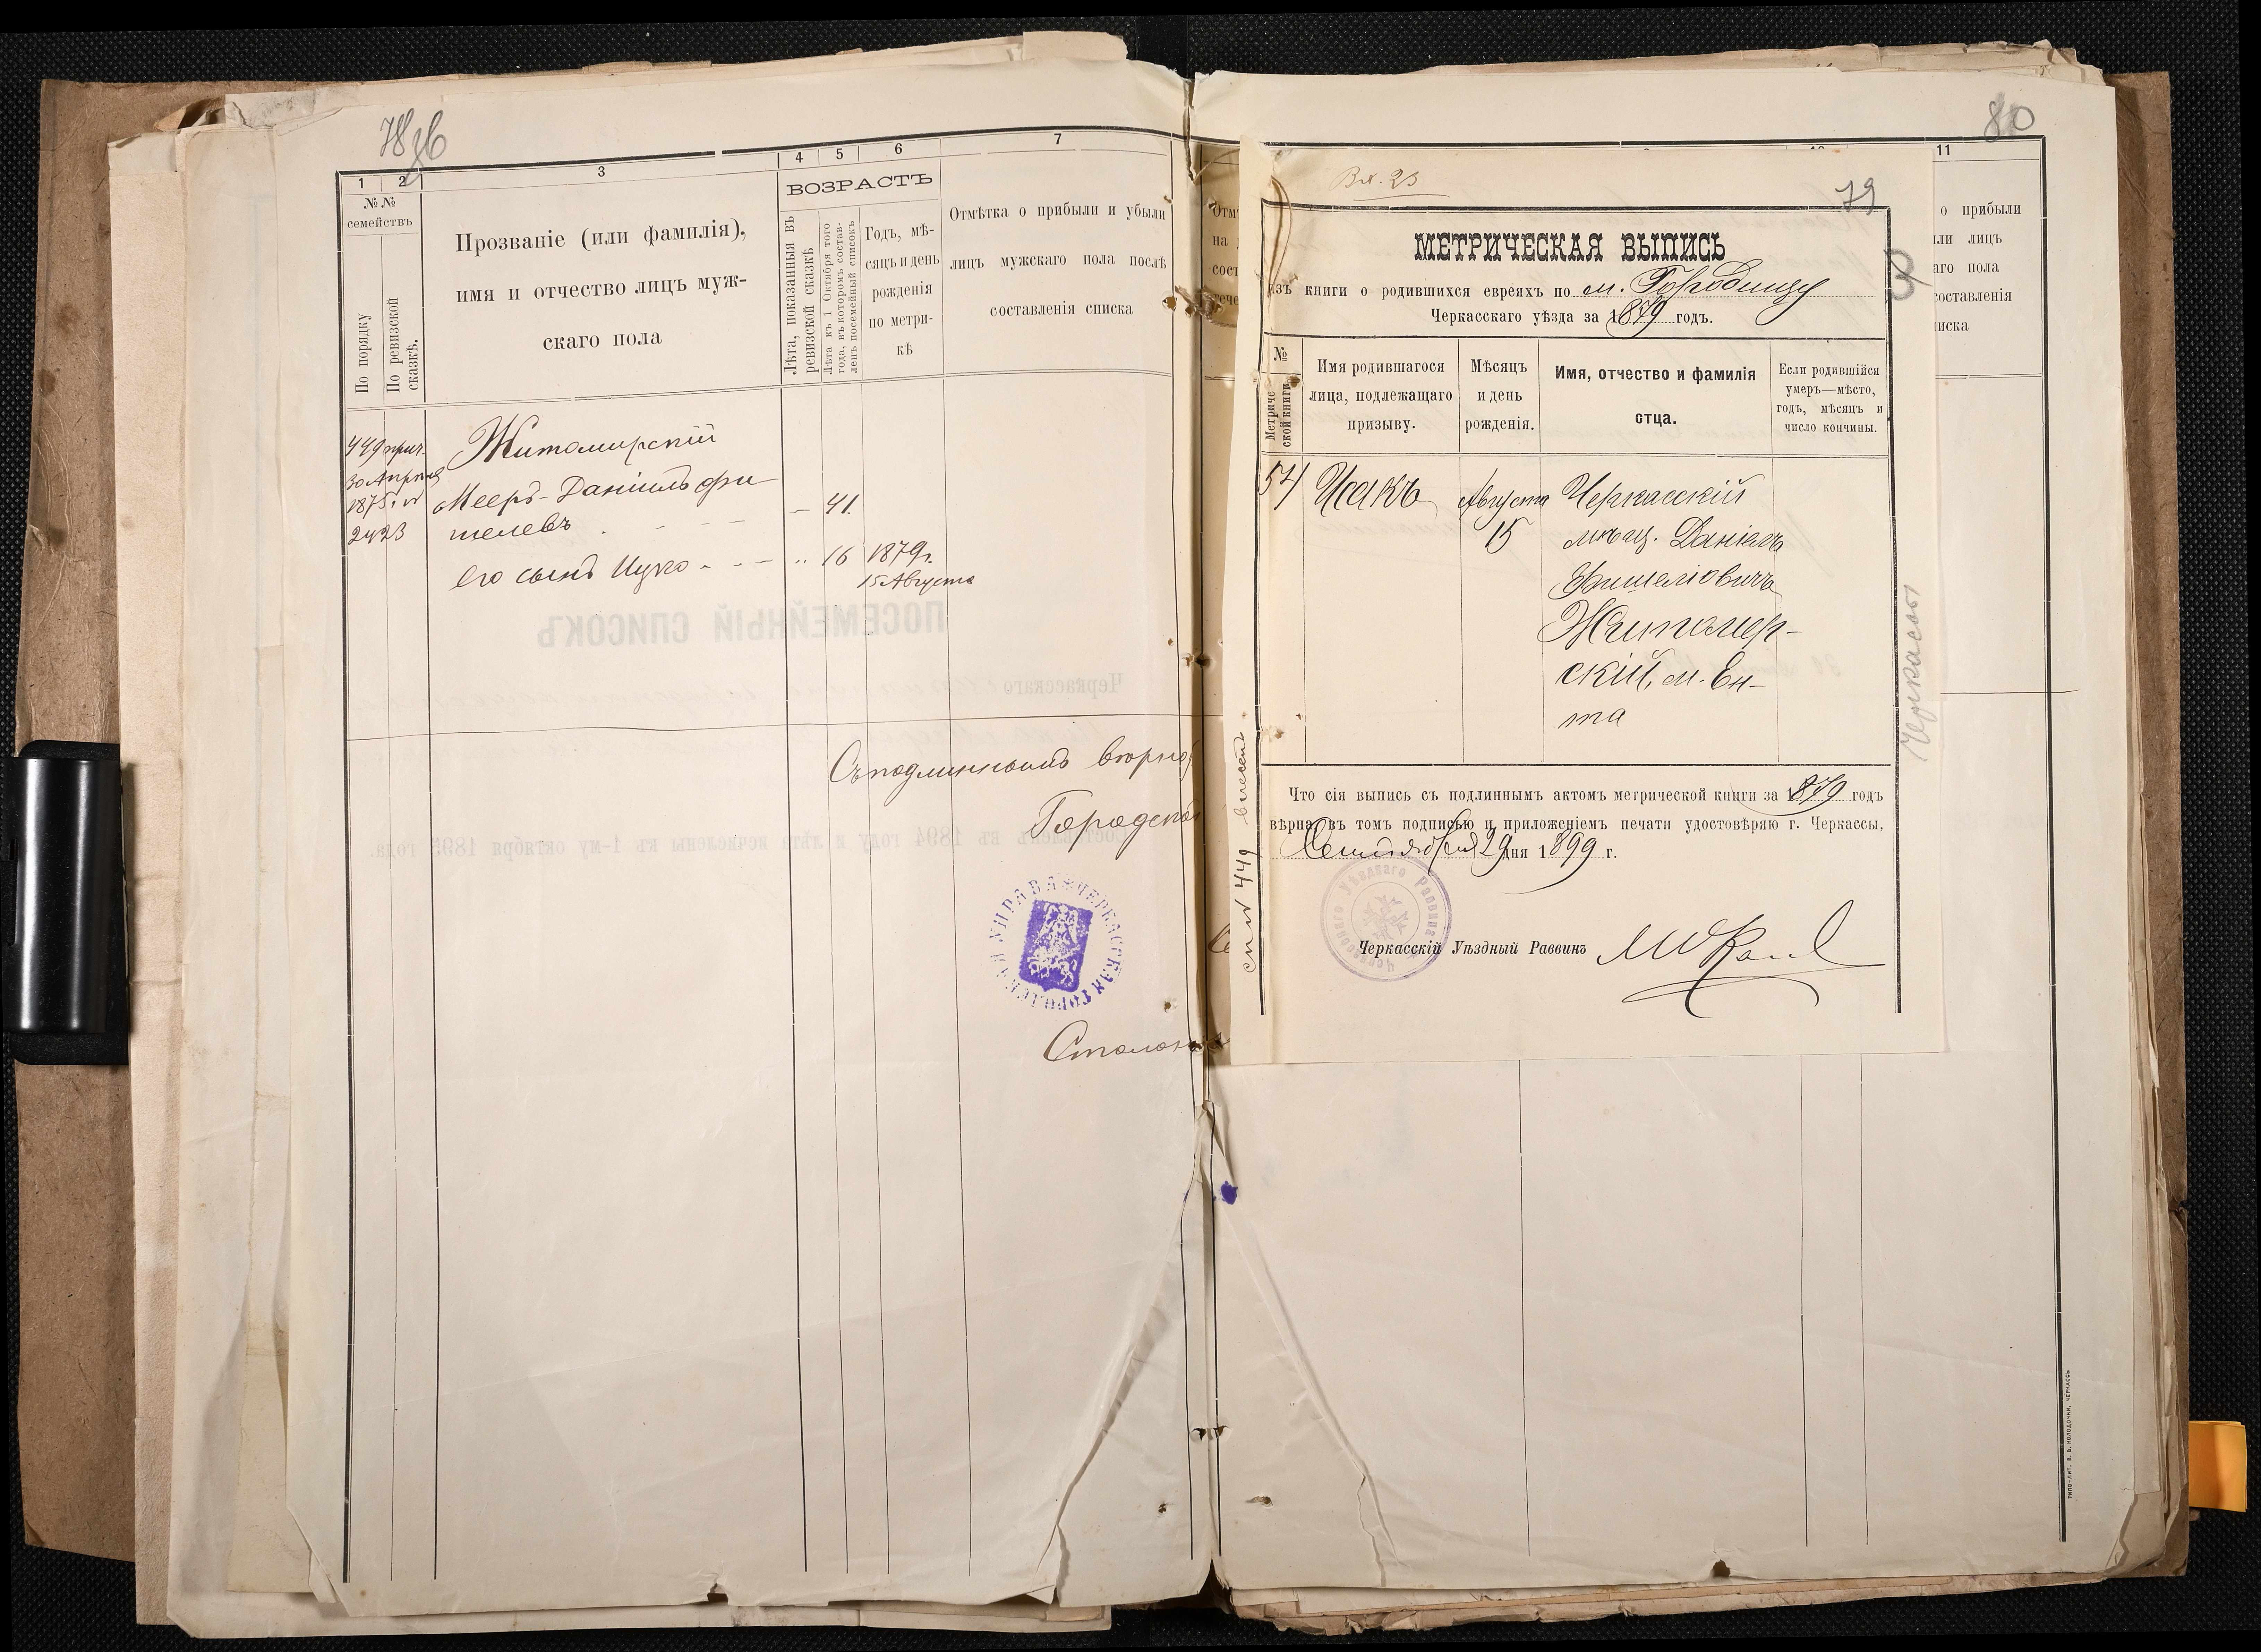 80
1 2 3 4 5 6 7
№№
семействъ
По порядку
По ревизской
сказкѣ.
Прозваніе (или фамилія),
имя и отчество лицъ муж-
скаго пола
ВОЗРАСТЪ
Лѣта, показанныя въ
ревизской сказкѣ
Лѣта къ 1 Октября того
года, въ которомъ состав-
ленъ посемейный списокъ
Годъ, мѣ-
сяцъ и день
рожденія
по метри-
кѣ
Отмѣтка о прибыли и убыли
лицъ мужскаго пола послѣ
составленія списка
449 прич.
30 Апрѣля
1875 г. №
2423
Житомирскій
Мееръ-Даніилъ Фи
шелевъ - - - — 41.
его сынъ Ицко - - - „ 16 1879 г.
15 Августа
ПОСЕМЕЙНЫЙ СПИСОКЪ
Черкасскаго
Составленъ въ 1894 году и лѣта исчислены къ 1-му октября 1895 года.
Съ подлиннымъ вѣрно
Городской
ЧЕРКАССКАЯ ГОРОДСКАЯ УПРАВА
Столон
11
о прибыли
или лицъ
аго пола
составленія
писка
Вх. 23
79
МЕТРИЧЕСКАЯ ВЫПИСЬ
изъ книги о родившихся евреяхъ по м. Городищу
Черкасскаго уѣзда за 1879 годъ.
№
Метриче
ской книги
Имя родившагося
лица, подлежащаго
призыву.
Мѣсяцъ
и день
рожденія.
Имя, отчество и фамилія
отца.
Если родившійся
умеръ—мѣсто,
годъ, мѣсяцъ и
число кончины.
54 Ицакъ Августа 15
Черкасскій
мѣщ. Даніелъ
Фишеліовичъ
Житомер-
скій, м. Ен-
та
Что сія выпись съ подлиннымъ актомъ метрической книги за 1879 годъ
вѣрна, въ томъ подписью и приложеніемъ печати удостовѣряю г. Черкассы,
Сентября 29 дня 1899 г.
Черкасскаго Уѣзднаго Раввина
Черкасскій Уѣздный Раввинъ
Черкассы
сп № 449
ТИПО-ЛИТ. В. В. КОЛОДОЧКИ, ЧЕРКАССЪ